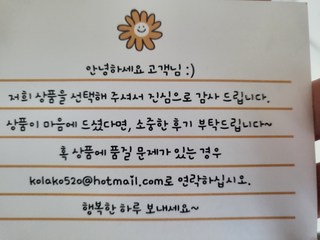 안녕하세요 고객님 :)
저희 상품을 선택해 주셔서 진심으로 감사 드립니다.
상품이 마음에 드셨다면, 소중한 후기 부탁드립니다~
혹 상품에 품질 문제가 있는 경우
kolako520@hotmail.com로 연락하십시오.
행복한 하루 보내세요~